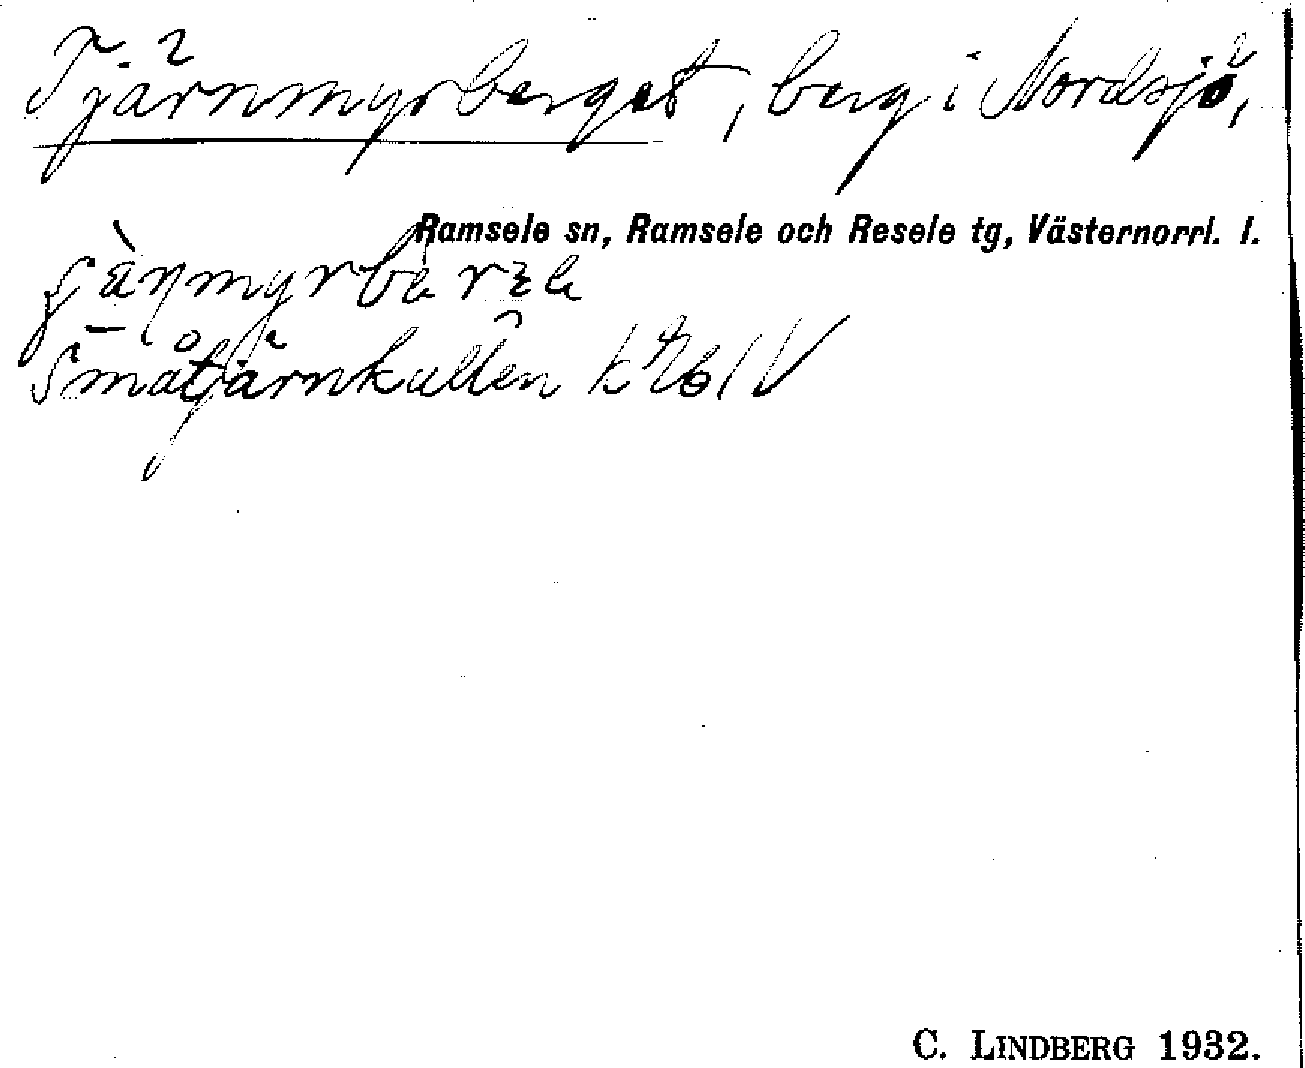 Tjärnmyrberget, berg i Nordsjö,
Ramsele sn, Ramsele och Resele tg, Västernorrl. l.
Småtjärnkullen
C. LINDBERG 1932.